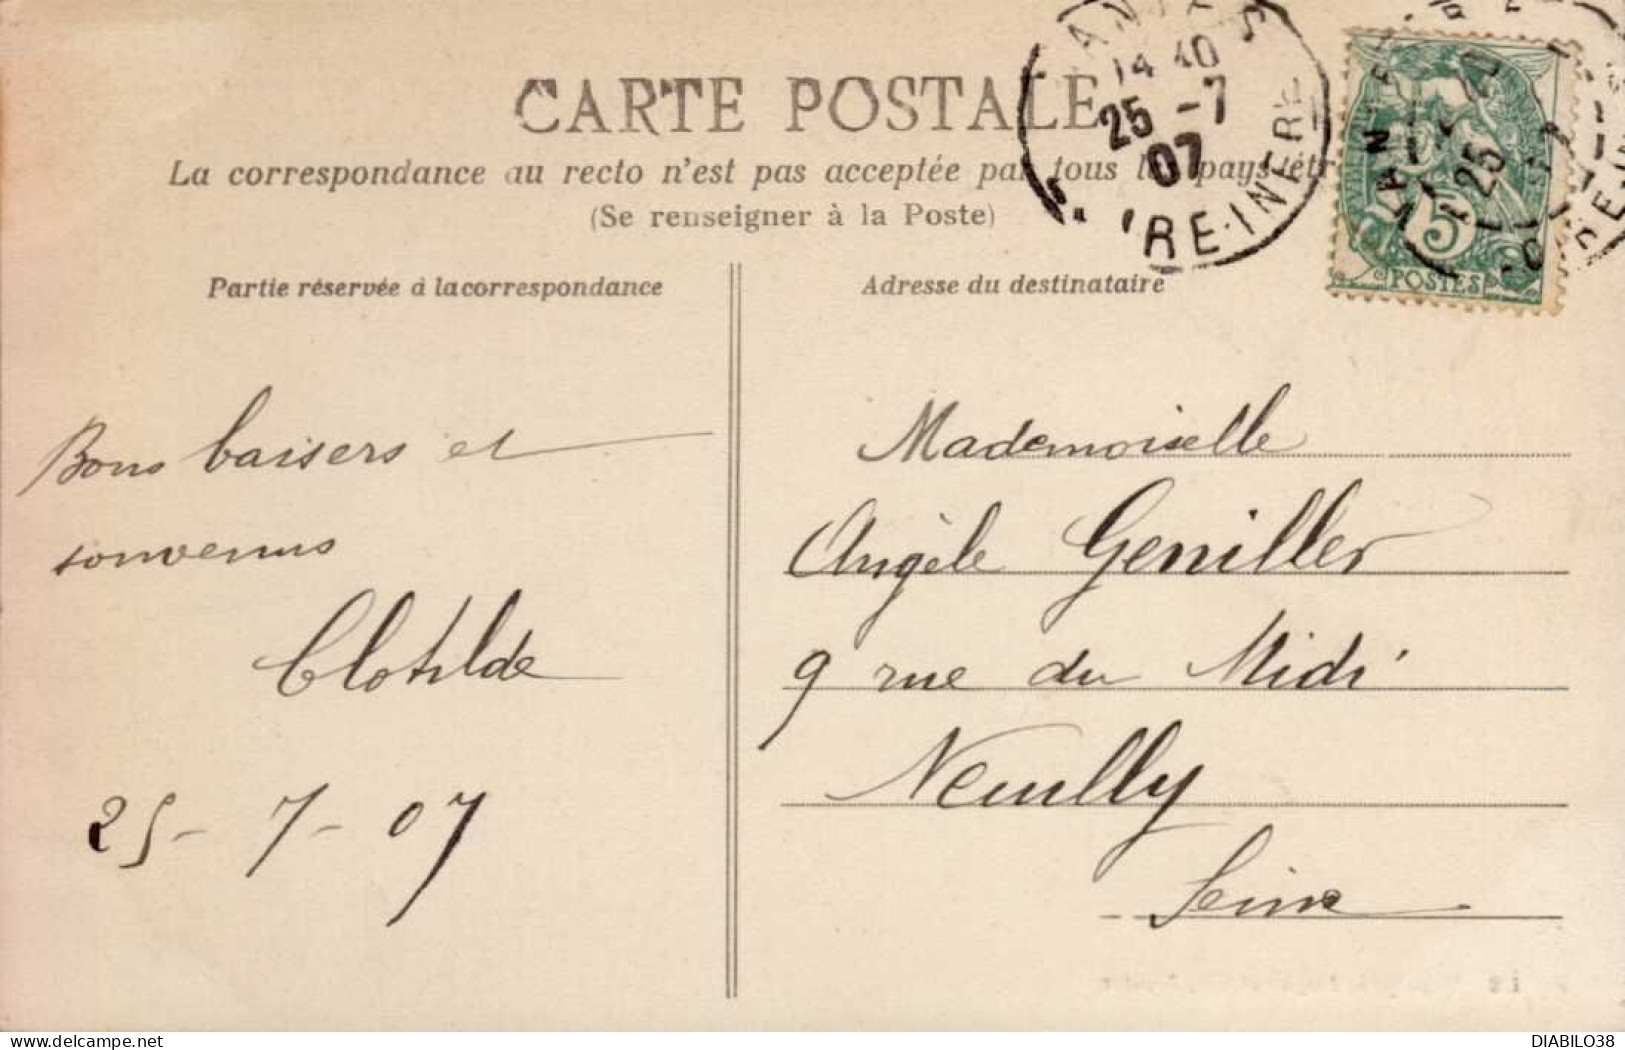 CARTE POSTALE
La correspondance au recto n'est pas acceptée par tous pays étr
(Se renseigner à la Poste)
14 40
25 - 7
07
RE-INFRE
25
5
POSTES
Partie réservée à la correspondance
Adresse du destinataire
Bons baisers et
souvenirs
Clotilde
25-7-07
Mademoiselle
Angèle Geniller
9 rue du Midi
Neuilly
Seine
DIABILO38